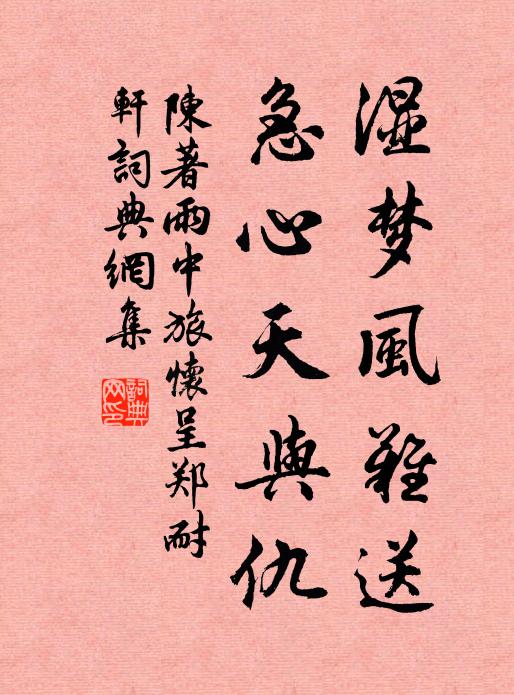 湿梦風難送
急心天與仇
陳著雨中旅懷呈郑耐
軒詞典網集
詞典網印